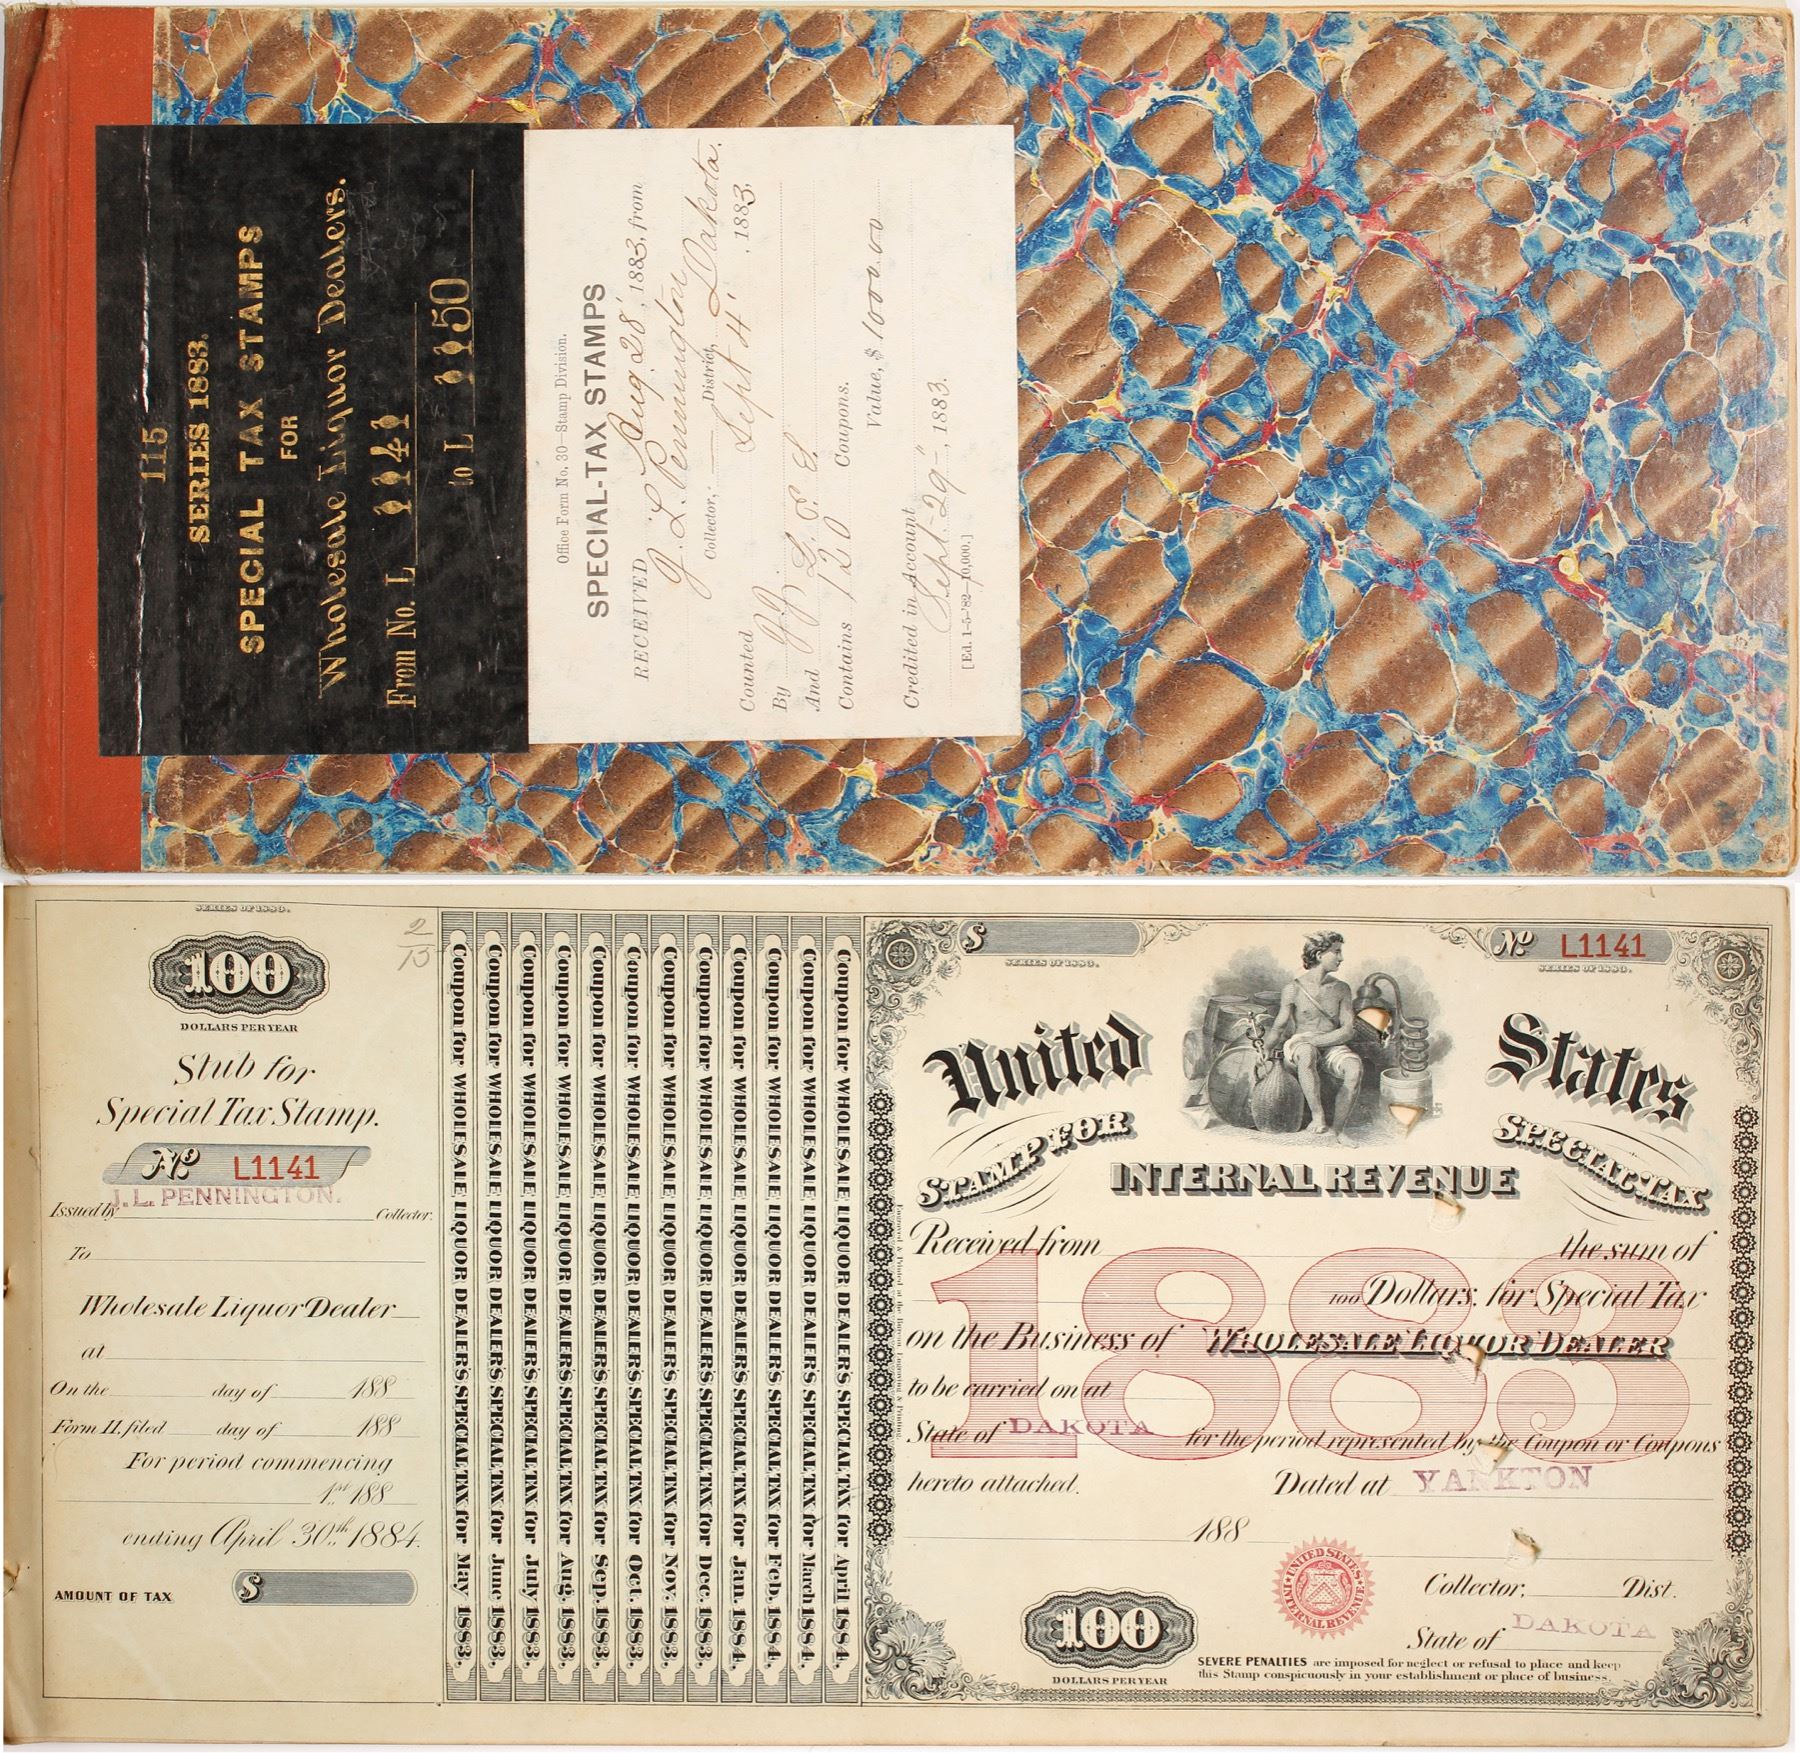 115
SERIES 1883.
SPECIAL TAX STAMPS
FOR
Wholesale Liquor Dealers.
From No. L 1141
to L 1150
Office Form No. 30—Stamp Division.
SPECIAL-TAX STAMPS
RECEIVED Aug. 28", 1883, from
J. L. Pennington
Collector, — District, Dakota.
Counted Sept 4", 1883.
By
And L. E. S.
Contains 120 Coupons.
Value, $ 1000.00
Credited in Account
Sept. 29", 1883.
[Ed. 1-5-'82—10,000.]
SERIES OF 1883.
2/15
100
DOLLARS PER YEAR
Stub for
Special Tax Stamp.
No L1141
J. L. PENNINGTON.
Issued by Collector.
To
Wholesale Liquor Dealer
at
On the day of 188
Form 11. filed day of 188
For period commencing
1st 188
ending April 30th 1884.
AMOUNT OF TAX $
Coupon for WHOLESALE LIQUOR DEALERS SPECIAL TAX for May 1883.
Coupon for WHOLESALE LIQUOR DEALERS SPECIAL TAX for June 1883.
Coupon for WHOLESALE LIQUOR DEALERS SPECIAL TAX for July 1883.
Coupon for WHOLESALE LIQUOR DEALERS SPECIAL TAX for Aug. 1883.
Coupon for WHOLESALE LIQUOR DEALERS SPECIAL TAX for Sep. 1883.
Coupon for WHOLESALE LIQUOR DEALERS SPECIAL TAX for Oct. 1883.
Coupon for WHOLESALE LIQUOR DEALERS SPECIAL TAX for Nov. 1883.
Coupon for WHOLESALE LIQUOR DEALERS SPECIAL TAX for Dec. 1883.
Coupon for WHOLESALE LIQUOR DEALERS SPECIAL TAX for Jan. 1884.
Coupon for WHOLESALE LIQUOR DEALERS SPECIAL TAX for Feb. 1884.
Coupon for WHOLESALE LIQUOR DEALERS SPECIAL TAX for March 1884.
Coupon for WHOLESALE LIQUOR DEALERS SPECIAL TAX for April 1884.
$
SERIES OF 1883.
No L1141
SERIES OF 1883.
1
United States
STAMP FOR SPECIAL TAX
INTERNAL REVENUE
1883
Received from the sum of
100 Dollars, for Special Tax
on the Business of WHOLESALE LIQUOR DEALER
to be carried on at
State of DAKOTA for the period represented by the Coupon or Coupons
hereto attached. Dated at YANKTON
188
Engraved & Printed at the Bureau Engraving & Printing.
UNITED STATES INTERNAL REVENUE
Collector, Dist.
State of DAKOTA
100
DOLLARS PER YEAR
SEVERE PENALTIES are imposed for neglect or refusal to place and keep
this Stamp conspicuously in your establishment or place of business.